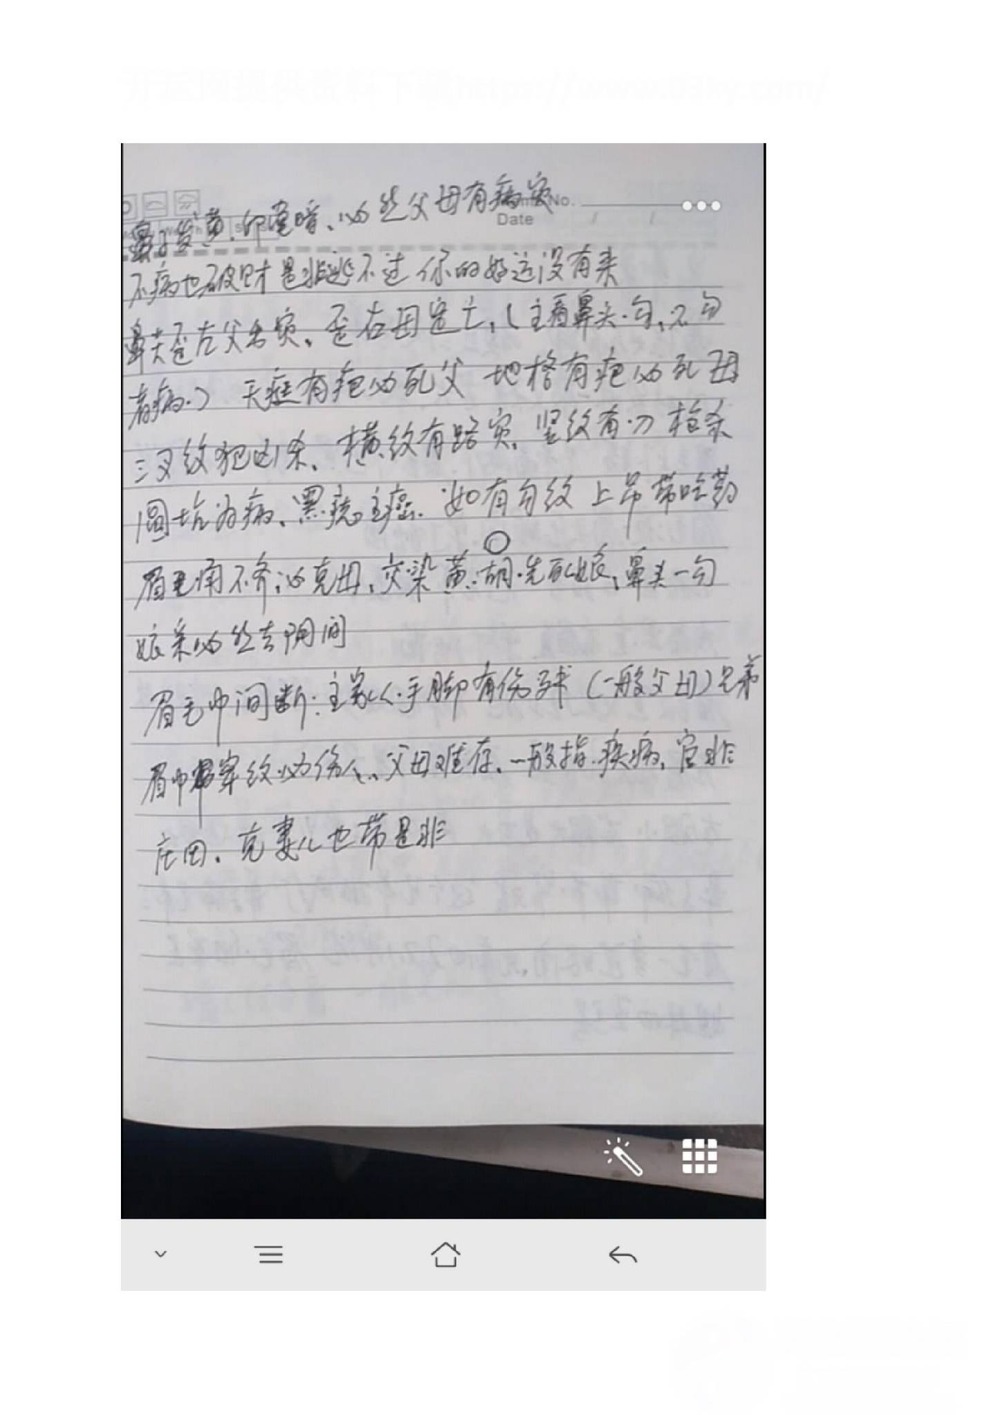 No.
Date
鼻子发黄、印堂暗、必然父母有病灾
不病也破财是非逃不过你的好运没有来
鼻头歪左父有灾、歪右母定亡,(主看鼻头·勾,不勾
者病.) 天庭有疤必死父 地格有疤必死母
三叉纹犯凶杀、横纹有路灾、竖纹有刀枪杀
圆坑为病、黑痣主癌.如有勾纹上吊带吃药
眉毛 不齐必克母,交染黄·胡·先死娘,鼻头一勾
娘亲必然去阴间
眉毛中间断:主家人·手脚有伤残 (一般父母)兄弟
眉中 纹必伤人、父母难存、一般指·疾病,官非
庄田、克妻儿也带是非